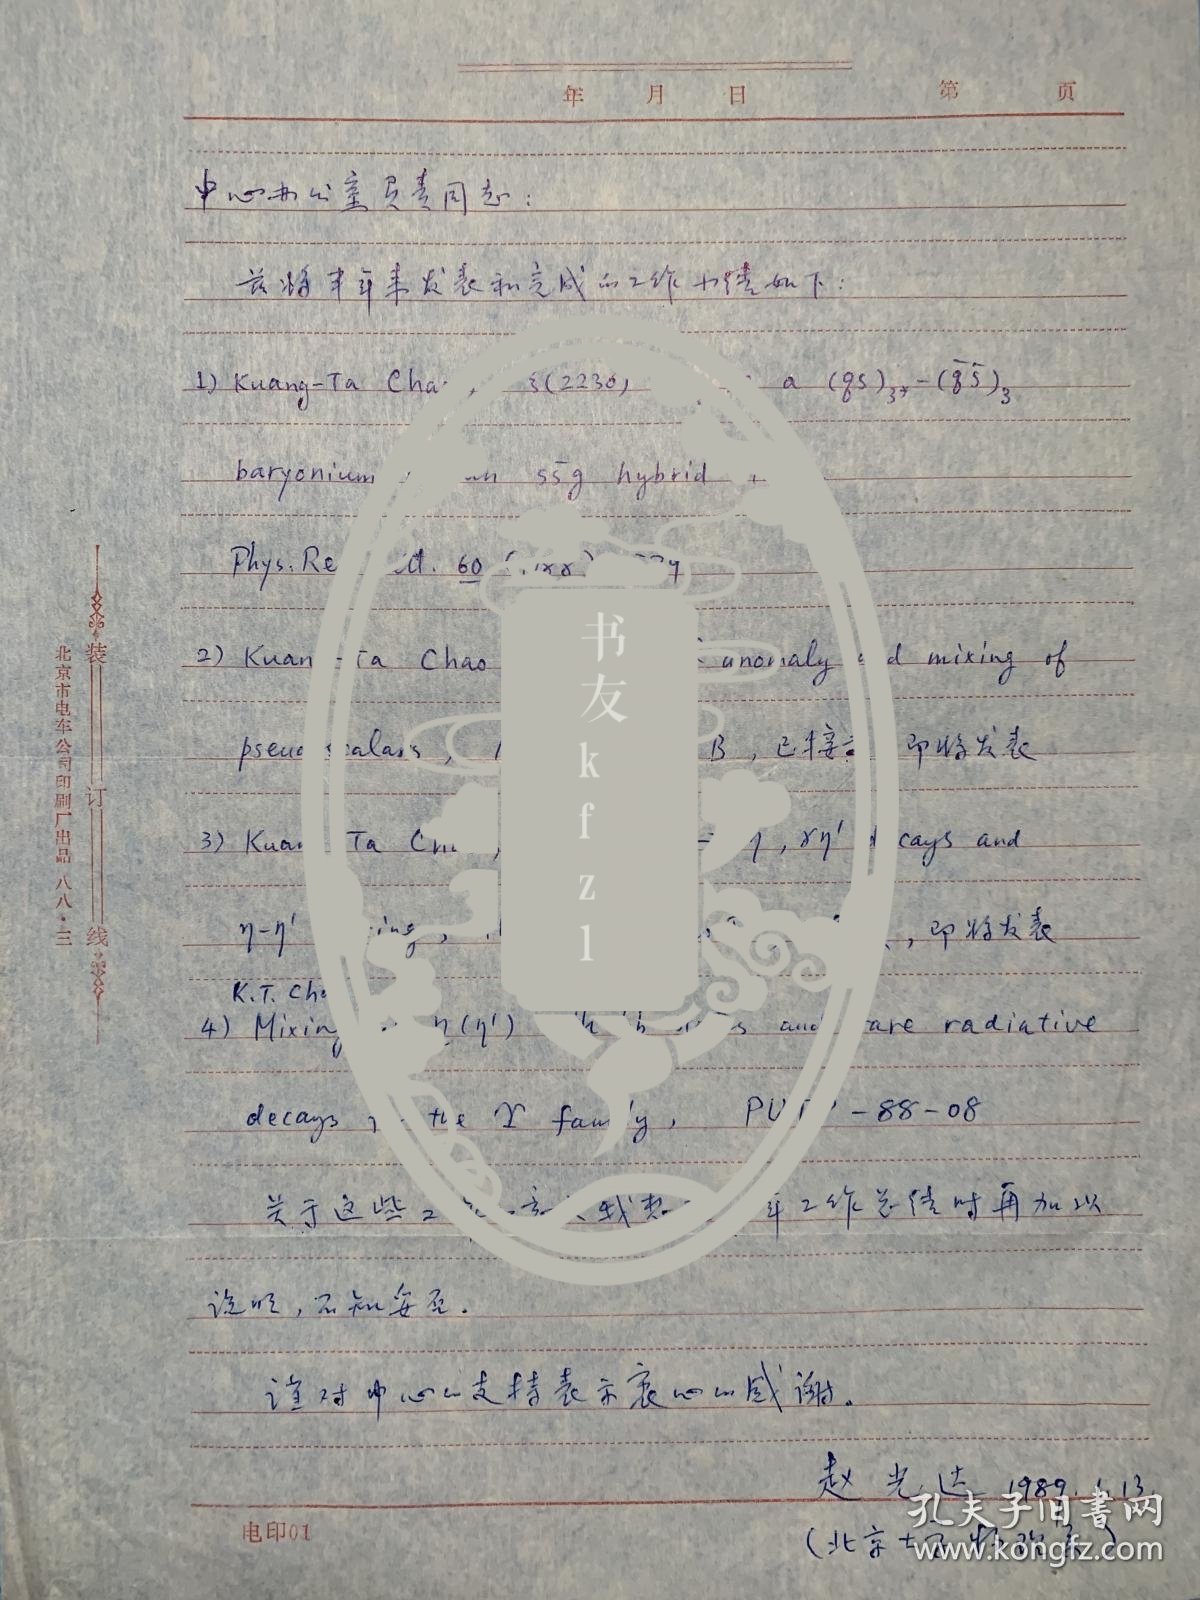 年 月 日 第 页
中心办公室负责同志：
兹将半年来发表和完成的工作小结如下：
1) Kuang-Ta (2230) a (qs)3* - (q̄s̄)3
baryonium ss̄g hybrid
Phys. 60
2) Kuang-Ta Chao anomaly and mixing of
pseudoscalars, B, 已接 即将发表
3) Kuang-Ta η, γη' decays and
η-η' , 即将发表
K.T. Chao
4) Mixing η(η') and rare radiative
decays the ϒ family, PUTP-88-08
关于这些工 我想 年工作总结时再加以
说明，不知妥否。
谨对中心的支持表示衷心的感谢。
赵光达 1989.1.13
(北京大学物理系)
装订线
北京市电车公司印刷厂出品 八八·三
电印01
书友kfzl
孔夫子旧书网
www.kongfz.com